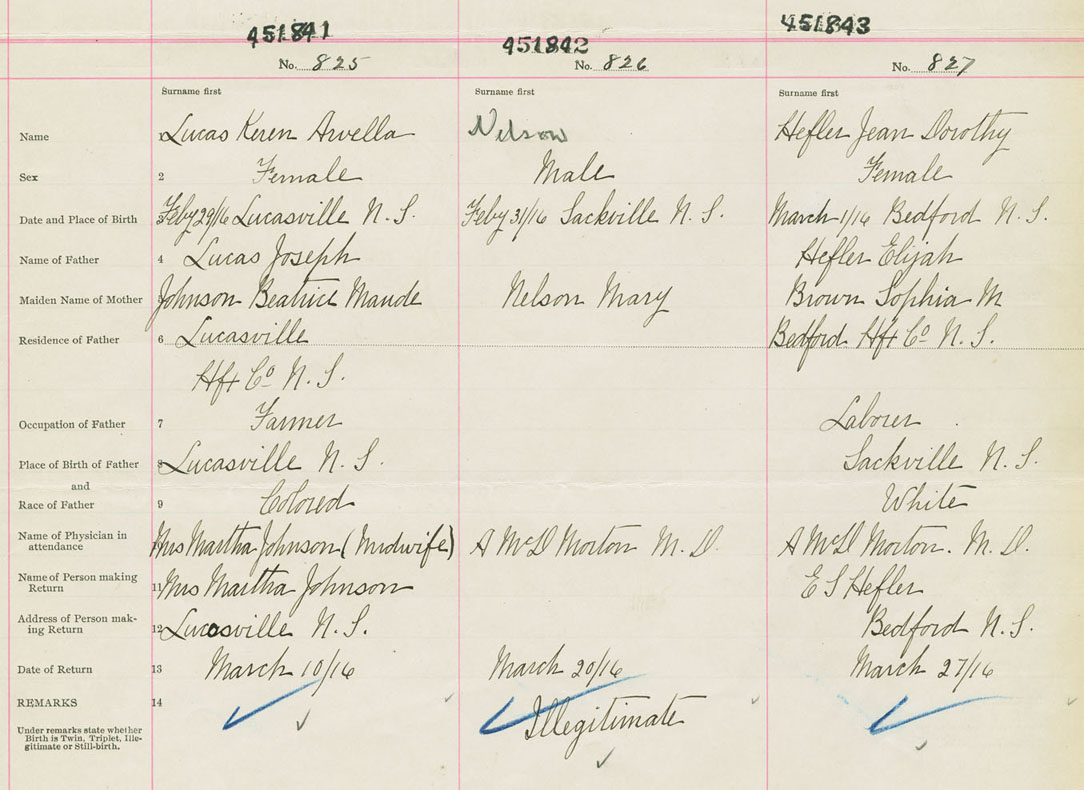 451841 451842 451843
No. 825 No. 826 No. 827
Surname first Surname first Surname first
Name 1 Lucas Keren Arvella Nelson Hefler Jean Dorothy
Sex 2 Female Male Female
Date and Place of Birth 3 Feby 29/16 Lucasville N. S. Feby 31/16 Sackville N. S. March 1/16 Bedford N. S.
Name of Father 4 Lucas Joseph Hefler Elijah
Maiden Name of Mother 5 Johnson Beatrice Maude Nelson Mary Brown Sophia M
Residence of Father 6 Lucasville Bedford Hfx Co N. S.
Hfx Co N. S.
Occupation of Father 7 Farmer Laborer
Place of Birth of Father 8 Lucasville N. S. Sackville N. S.
and
Race of Father 9 Colored White
Name of Physician in Mrs Martha Johnson (Midwife) A McD Morton M. D. A McD Morton. M. D.
attendance
Name of Person making 11 Mrs Martha Johnson E S Hefler
Return
Address of Person mak-
ing Return 12 Lucasville N. S. Bedford N. S.
Date of Return 13 March 10/16 March 20/16 March 27/16
REMARKS 14 Illegitimate
Under remarks state whether
Birth is Twin, Triplet, Ille-
gitimate or Still-birth.